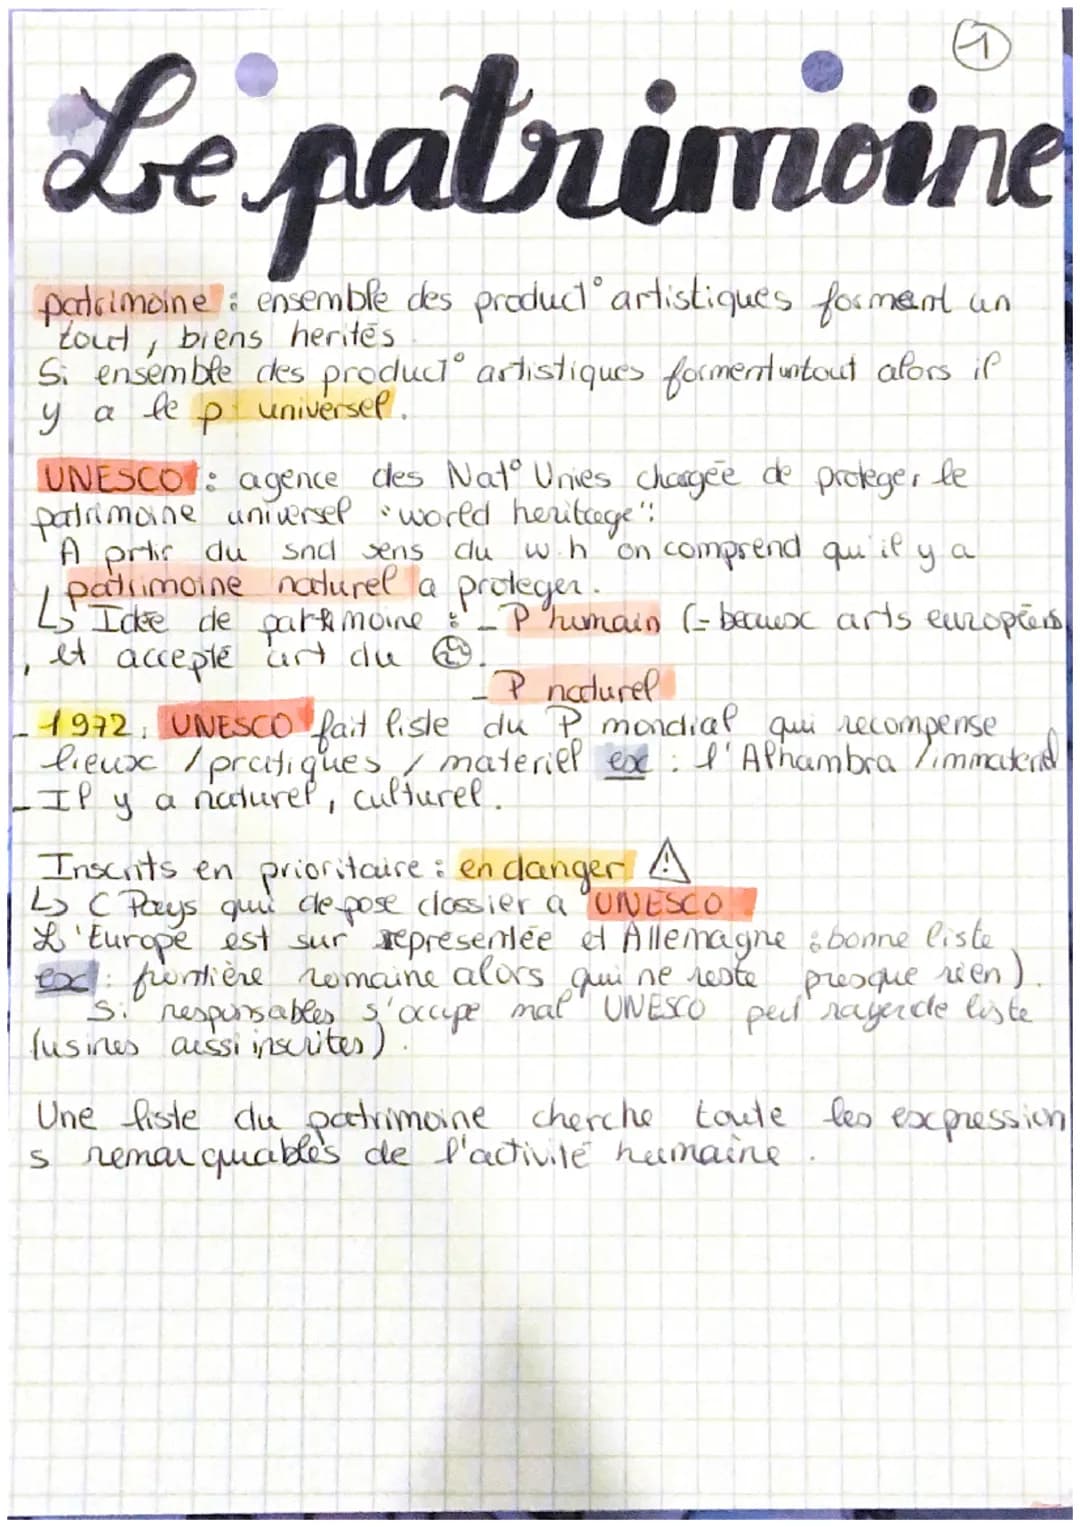 1
Le patrimoine
patrimoine : ensemble des product° artistiques forment un
tout, biens herités
Si ensemble des product° artistiques forment un tout alors il
y a le p universel.
UNESCO : agence des Nat° Unies chargée de proteger le
patrimoine universel "world heritage":
A prtir du snd sens du w.h on comprend qu'il y a
patrimoine naturel a proteger.
↳ Idée de patrimoine : - P humain (= beaux arts européens
, et accepté art du
- P naturel
- 1972 : UNESCO fait liste du P mondial qui recompense
lieux / pratiques / materiel ex : l'Alhambra / immateriel
- Il y a naturel, culturel.
Inscrits en prioritaire : en danger ⚠
↳ C Pays qui depose dossier a UNESCO
L'Europe est sur représentée et Allemagne : bonne liste
ex : frontière romaine alors qui ne reste presque rien).
Si responsables s'occupe mal UNESCO peut rayer de liste
(usines aussi inscrites).
Une liste du patrimoine cherche toute les expression
s remarquables de l'activité humaine.